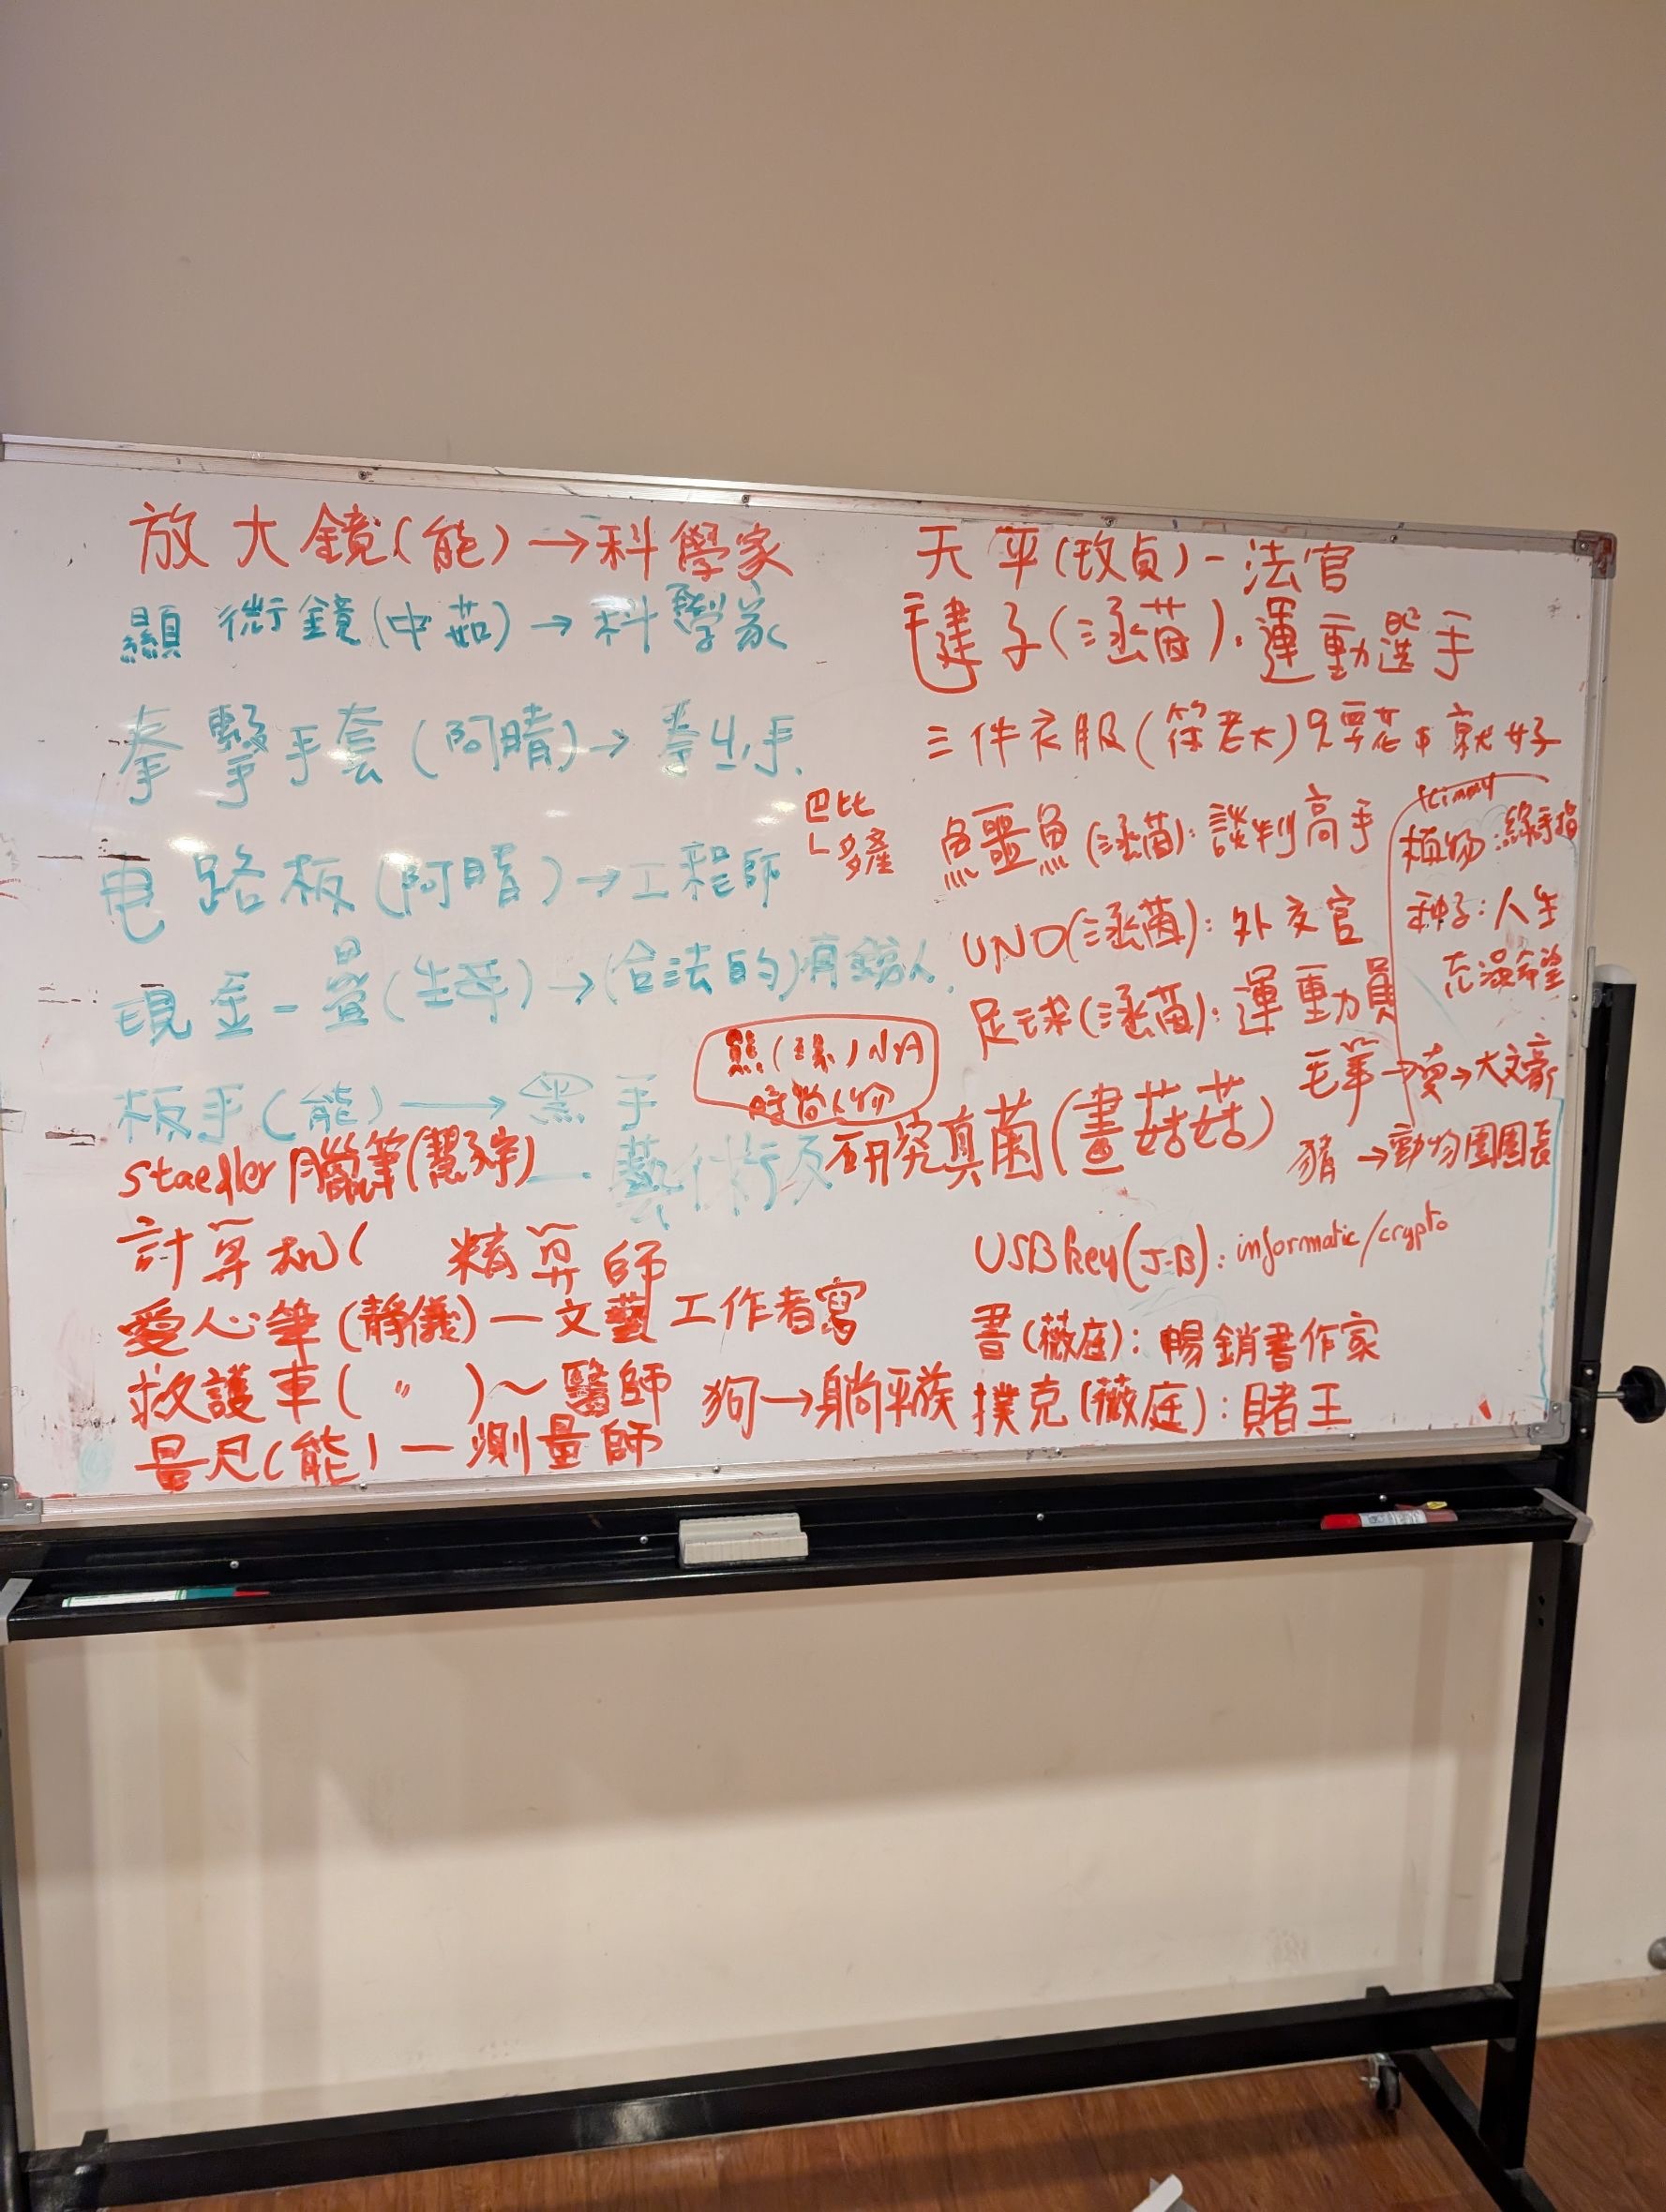 放大鏡(能)→科學家
顯微鏡(中茹)→科學家
拳擊手套(阿晴)→拳ㄐㄧ手.
电路板(阿晴)→工程師
現金一疊()→(合法的)有錢人.
板手(能)→黑手
staedler 腦筆()—藝術行及
計算机( 精算師
愛心筆(靜儀)—文藝工作者寫
救護車( 〃 )~醫師
量尺(能)—測量師
巴比
└多產
熊()小丹
時尚人物
研究真菌(畫菇菇)
狗→躺平族
天平(玫貞)-法官
毽子(涵茵):運動選手
三件衣服(徐老大)只要花巾就好
鱷魚(涵茵):談判高手
UNO(涵茵):外交官
足球(涵茵):運動員
timmy
植物:綠手指
种子:人生
充滿希望
毛筆→賣→大文豪
豬→動物園園長
USB key(J-B): informatic/crypto
書(薇庭):暢銷書作家
撲克(薇庭):賭王